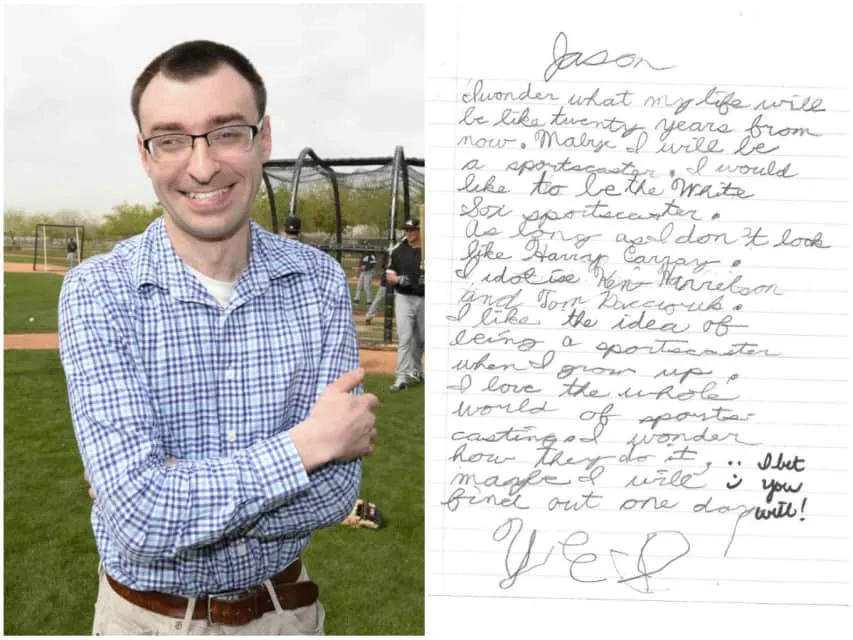 Jason
I wonder what my life will
be like twenty years from
now. Mabye I will be
a sportscaster. I would
like to be the White
Sox sportscaster.
As long as I don't look
like Harry Caray.
I idolise Ken Harrelson
and Tom
I like the idea of
being a sportscaster
when I grow up.
I love the whole
world of sports-
casting. I wonder
how they do it,
maybe I will
find out one day
I bet
you
will!
Yes!